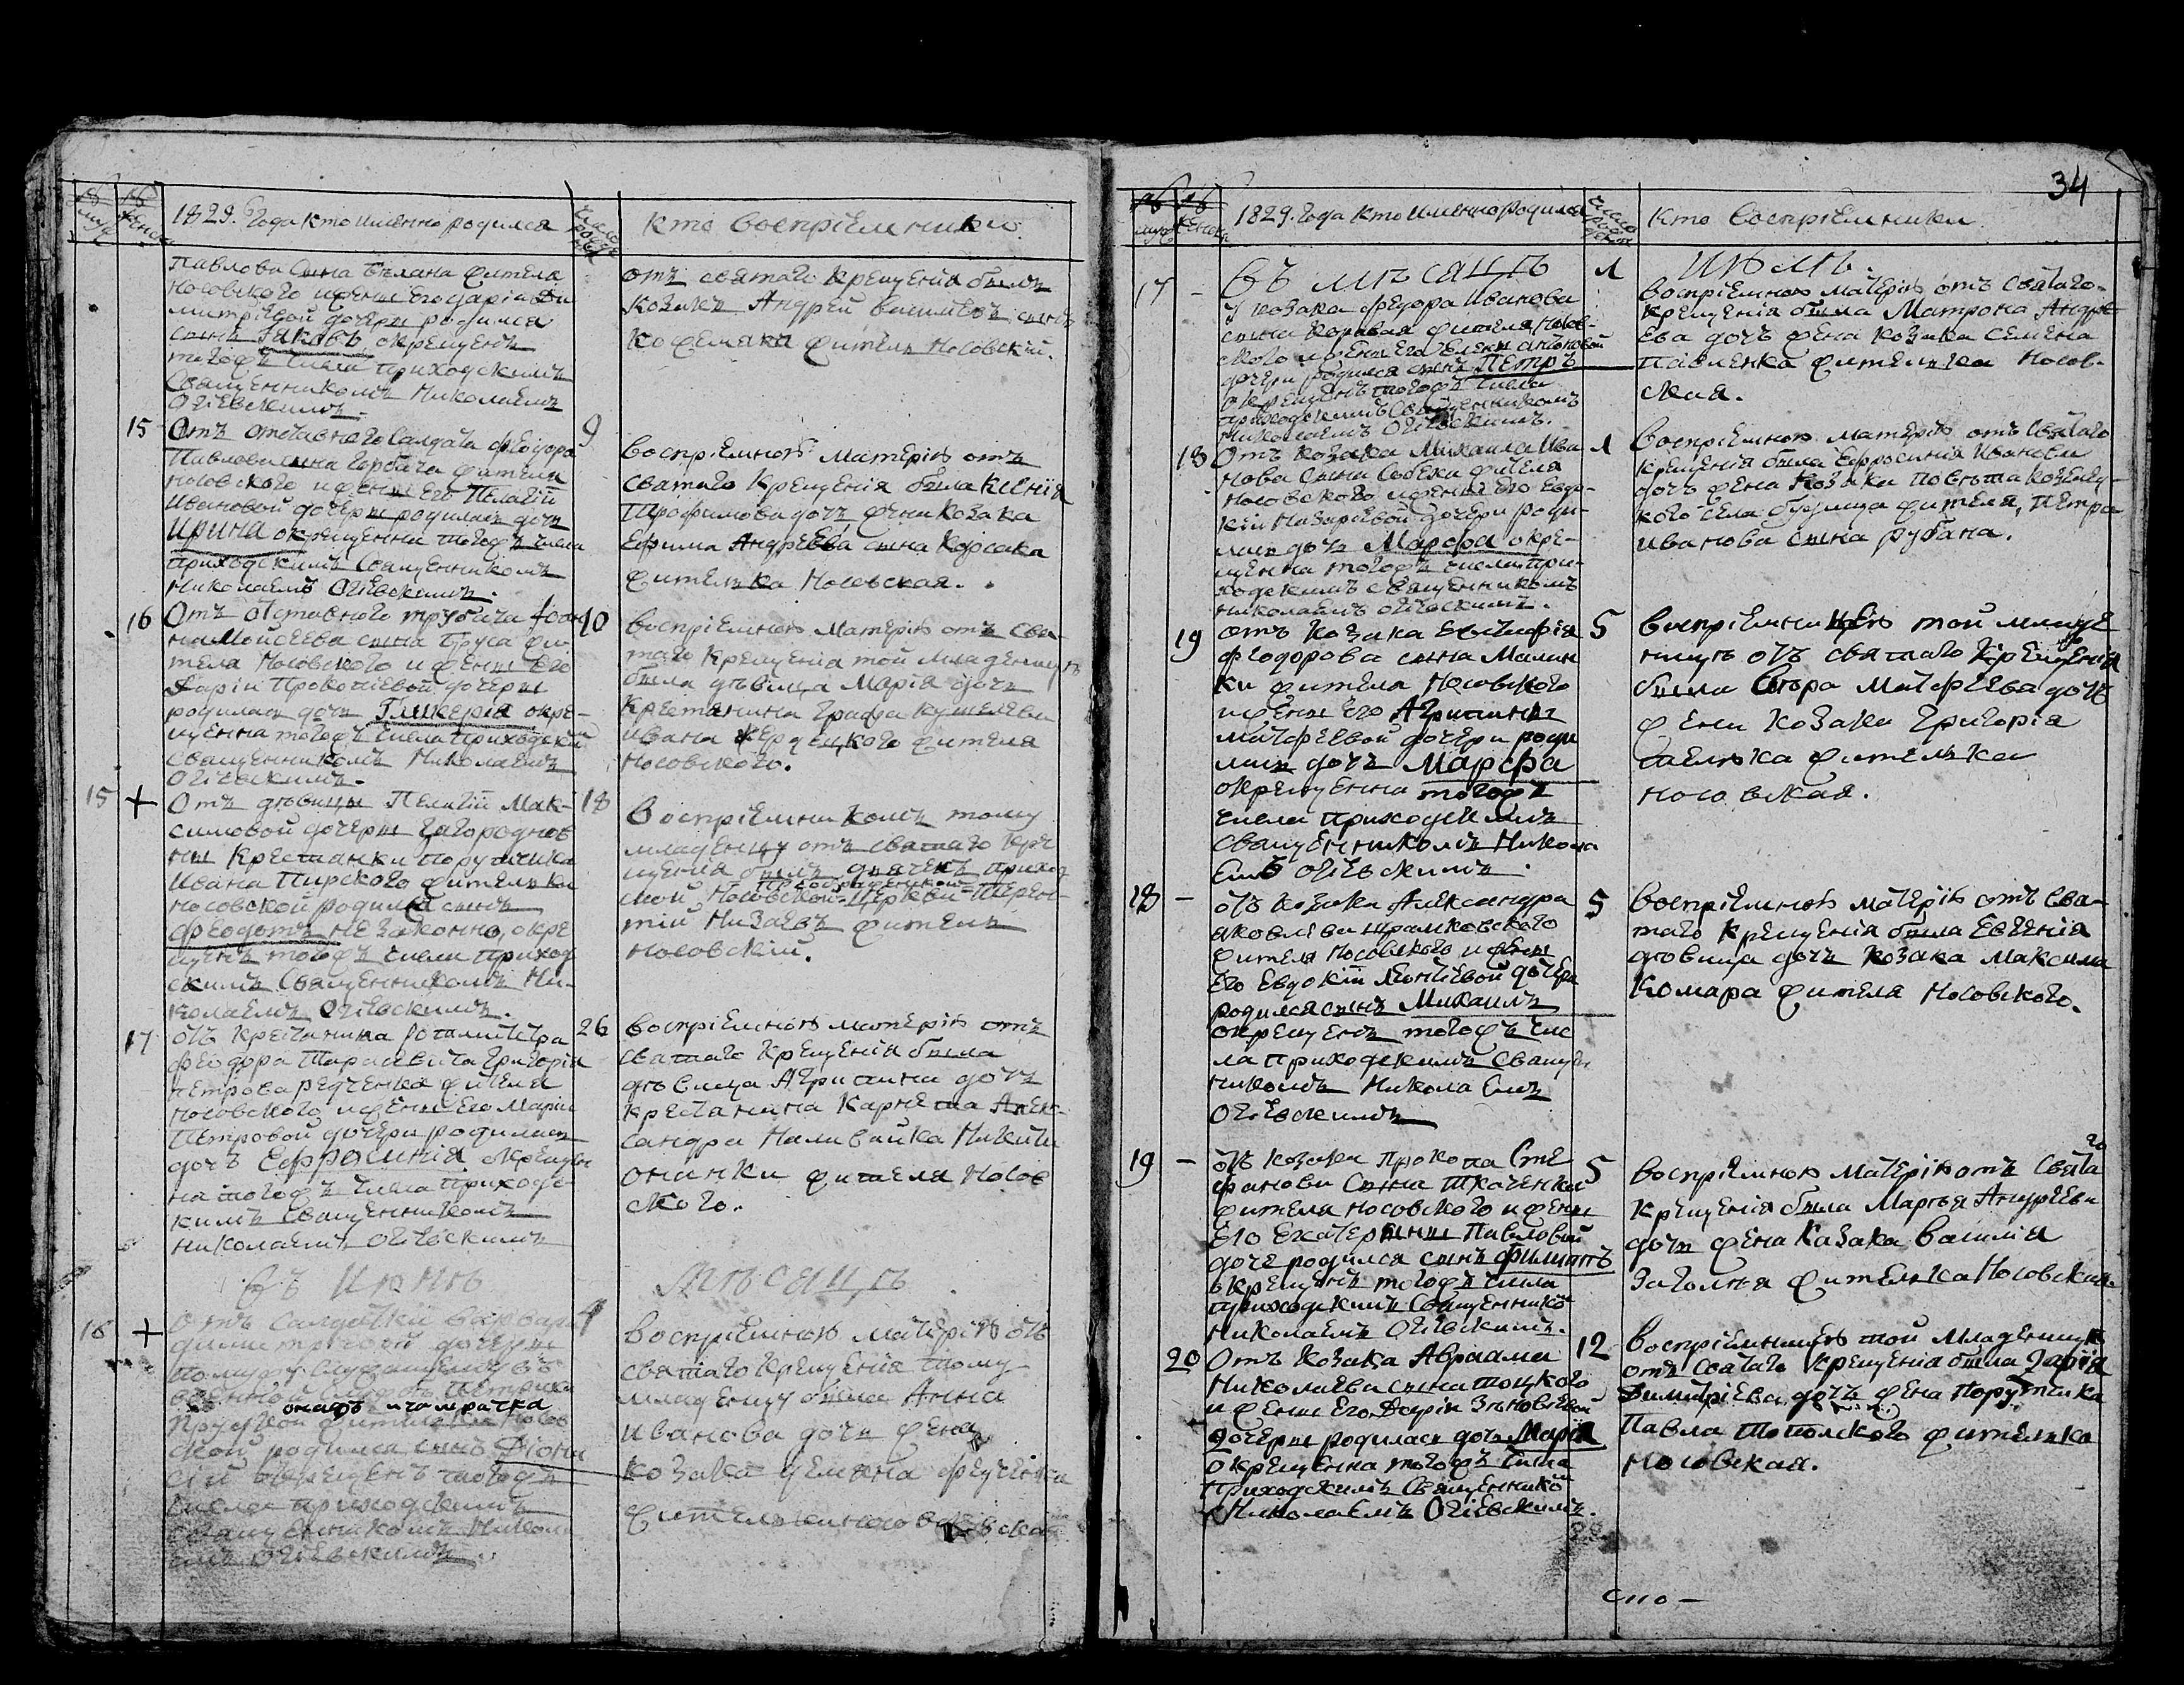 1829. Года кто именно родился
кто воспріемники
Павлова сына Белана жителя
Носовского и жены его Даріи Ди
митріевой дочери родился
сынъ Іаковъ, окрещенъ
тогожъ числа приходскимъ
Священникомъ Николаемъ
Огіевскимъ.
отъ святаго Крещенія былъ
козакъ Андрей Василіевъ сынъ
Кожемяка житель Носовскій.
15
Отъ отставного Салдата Феодора
Павлова сына Горбача жителя
Носовского и жены его Пелагіи
Ивановой дочери родилась дочь
Ирина окрещенна тогожъ числа
приходскимъ Священникомъ
Николаемъ Огіевскимъ.
9
Воспріемною Матерію отъ
святаго Крещенія была Ксенія
Трофимова дочь жена Козака
Ефима Андреева сына Корсака
жителька Носовская.
16
Отъ отставного трубача
Мойсеева сына Бруса жи
теля Носовского и жены его
Даріи Прокопіевой дочери
родилась дочь Гликерія окре-
щенна тогожъ числа приходским
священникомъ Николаемъ
Огіевскимъ.
10
Воспріемною Матерію отъ Свя-
таго Крещенія той младеницы
была девица Марія дочь
Крестянина Графа Кушелева
Ивана жителя
Носовского.
15 +
Отъ девицы Пелагіи Мак-
симовой дочери Загороднов
ны Крестянки порутчика
Ивана Пирского жительки
Носовской родился сынъ
Феодотъ незаконно, окре
щенъ тогожъ числа приход
скимъ Священникомъ Ни-
колаемъ Огіевскимъ.
18
Воспріемникомъ тому
младенцу отъ святаго Кре
щенія былъ дячекъ приход
ской Носовской Церкви Терен-
тій Низаевъ житель
Носовскій.
17
отъ Крестянина Ротмистра
Феодора Тарасевича Григорія
Петрова Редченка жителя
Носовского и жены его Маріи
Петровой дочери родилась
дочь Ефросинія окрещен
на тогожъ числа приходс-
кимъ Священникомъ
Николаемъ Огіевскимъ
26
Воспріемною матерію отъ
святаго Крещенія была
девица Агрипина дочь
крестянина Карнета Алек-
сандра Наливайка Никиты
Онанки жителя Носов
ского.
Въ Іюнѣ
Мѣсяцѣ
16 +
Отъ Салдатки Варвары
Димитріевой дочери
родился сынъ Діони
сій окрещенъ тогожъ
числа приходскимъ
священникомъ Никола
емъ Огіевскимъ.
4
Воспріемною матерію отъ
святаго Крещенія тому
младенцу была Анна
Иванова дочь жена
козака Демяна
34
1829. Года кто именно родился
кто воспріемники
Въ мѣсяцѣ
Іюлѣ.
17 -
У козака Федора Иванова
сына Коровая жителя Носов-
ского и жены его Елены Антоновой
дочери родился сынъ Петръ
окрещенъ тогожъ числа
приходскимъ Священникомъ
Николаемъ Огіевскимъ.
1
Воспріемною матерію отъ Святаго
Крещенія была Матрона Андре
ева дочь жена козака Семена
Павленка жителька Носов-
ская.
18
Отъ козака Михаила Ива
нова сына Собека жителя
Носовского и жены его Евдо-
кіи Назаріевой дочери роди-
лась дочь Марѳа окре-
щенна тогожъ числа при-
ходскимъ священникомъ
Николаемъ Огіевскимъ.
1
Воспріемною матерію отъ Святаго
крещенія была Ефросинія Иванова
дочь жена Козака Повета Козелец-
кого села жителя, Петра
Иванова сына Рубана.
19
отъ Козака Евстафія
Феодорова сына Малин
ки жителя Носовского
и жены его Агрипины
Матфеевой дочери роди
лась дочь Марѳа
окрещенна тогожъ
числа приходскимъ
священникомъ Никола
емъ Огіевскимъ.
5
Воспріемницею той младе
ницы отъ святаго Крещенія
была Вѣра Матфеева дочь
жена козака Григорія
жителька
Носовская.
18 -
отъ козака Александра
Яковлева
жителя Носовского и жены
его Евдокіи Леонтіевой дочери
родился сынъ Михаилъ
окрещенъ тогожъ чис
ла приходскимъ Священ
никомъ Николаемъ
Огіевскимъ
5
Воспріемною матерію отъ Свя-
таго крещенія была Евгенія
девица дочь козака Максима
Комара жителя Носовского.
19 -
отъ козака Прокопа Сте
фанова сына Ткаченка
жителя Носовского и жены
его Екатерины Павловой
доче родился сынъ Филиппъ
окрещенъ тогожъ числа
приходскимъ Священнико
Николаемъ Огіевскимъ.
5
Воспріемною матерію отъ Святаго
крещенія была Марѳа Андреева
дочь жена Казака Василія
жителька Носовская.
20
Отъ Козака Авраама
Николаева сына Тоцкого
и жены его Даріи Зѣновіевой
дочери родилась дочь Марія
окрещенна тогожъ числа
приходскимъ Священнико
Николаемъ Огіевскимъ.
12
Воспріемницею той младеницы
отъ Святаго крещенія была Дарія
Димитріева дочь жена Порутчика
Павла Топольского жителька
Носовская.